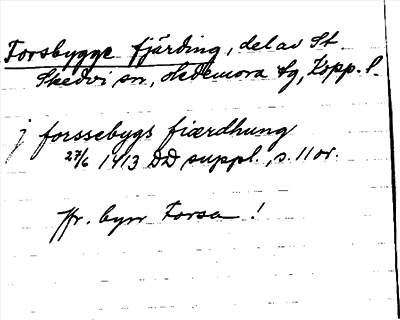 Forsbygge fjärding, del av St.
Skedvi sn, Hedemora tg, Kopp. l.
j forssebygs fiærdhung
27/6 1413 DD suppl., s. 11 or.
Jfr. byn Forsa!